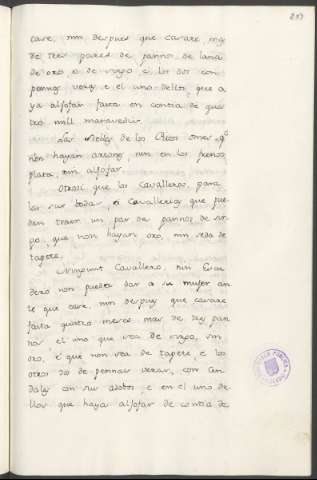 253
case, nin despues que casare, mas
de tres pares de pannos de lana
de oro o de viage, e los dos con
pennas veras, e el uno dellos, que a
ya aljofar fasta en contia de qua
tro mill maravedis.
Las sillas de los Otros omes, q̃
non hayan arzones, nin en los
plata, nin aljofar.
Otrosi que los Cavalleros, para
las sus bodas, o Cavallerias que pue
dan traer un par de pannos de
que non hayan oro, nin seda de
tapete.
Ningunt Cavallero, nin Escu
dero non pueda dar a su muger an
te que case, nin despues que casare
fasta quatro meses mas de tres pan
nos, el uno que sea de viage, sin
oro, e que non sea de tapete, e los
otros dos de pennas veras, con cen
dales con sus adobos, e en el uno de
llos que haya aljofar de contia de